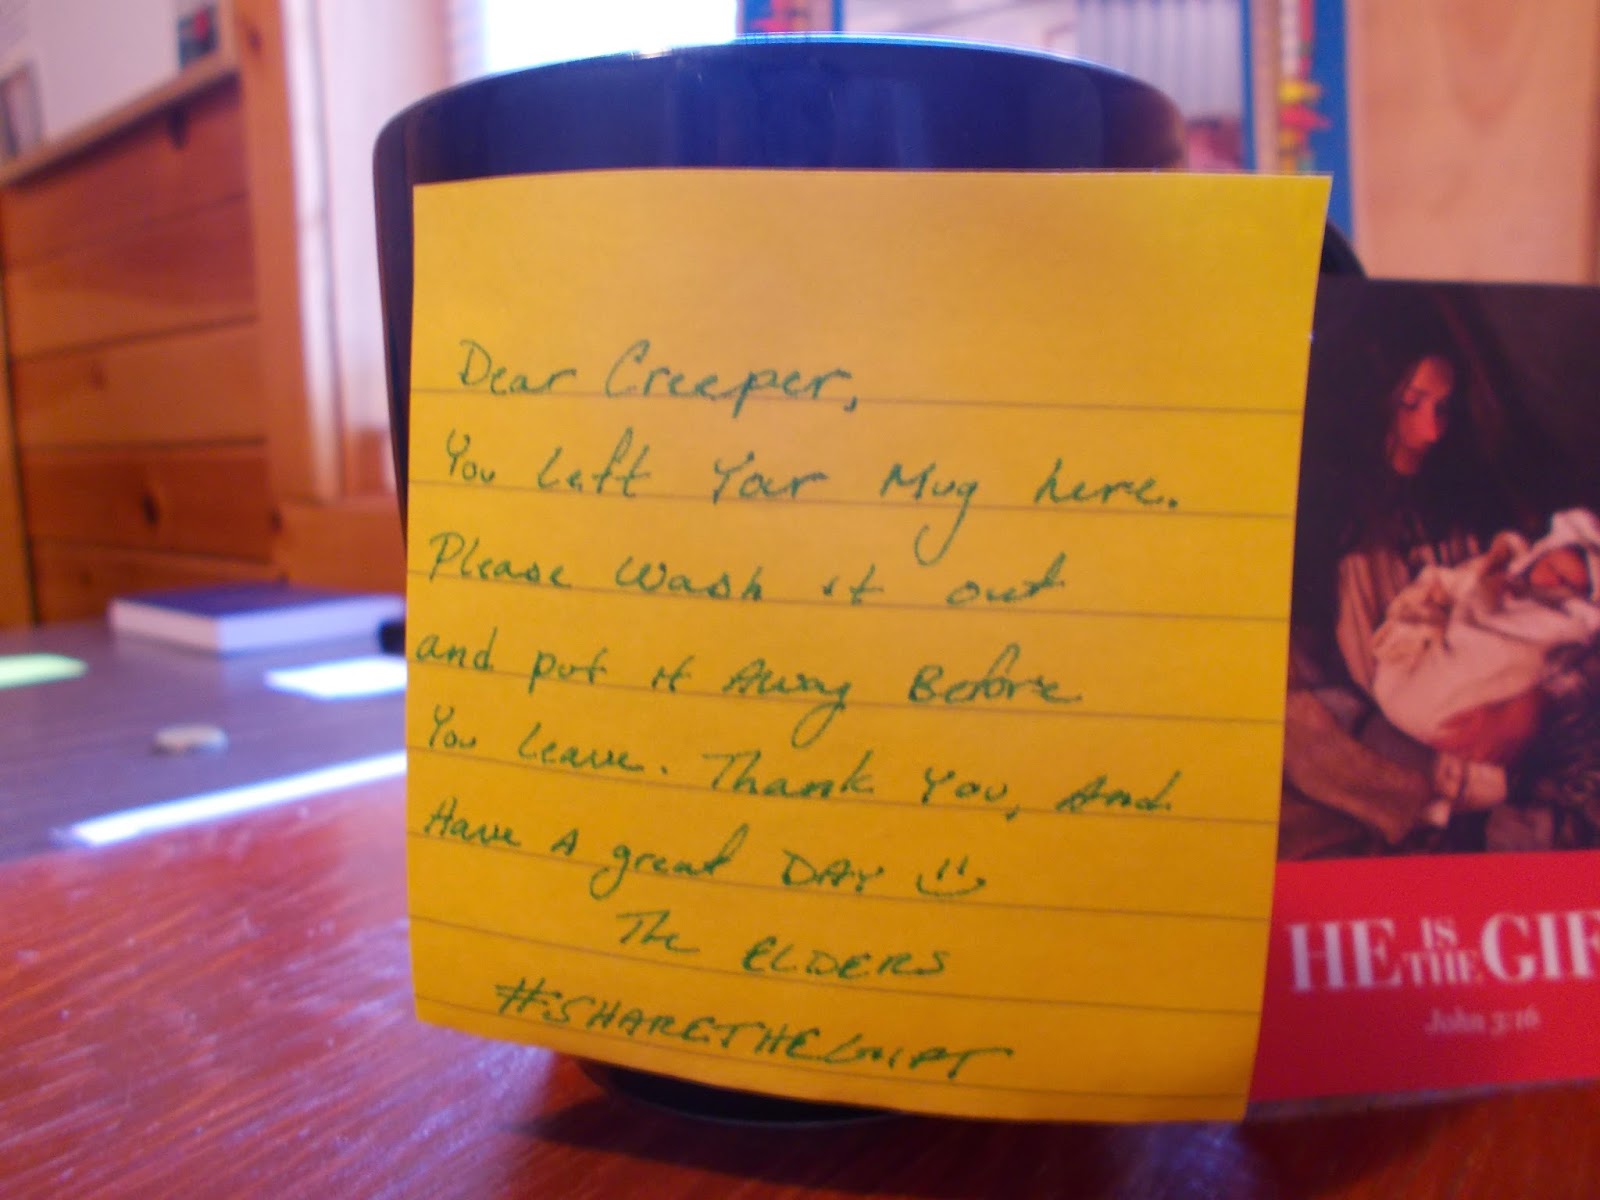 Dear Creeper,
You Left Your Mug here.
Please wash it out
and put it Away Before
You Leave. Thank You, And
Have A great DAY
The ELDERS
#SHARETHEGIFT
HE IS THE GIF
John 3:16